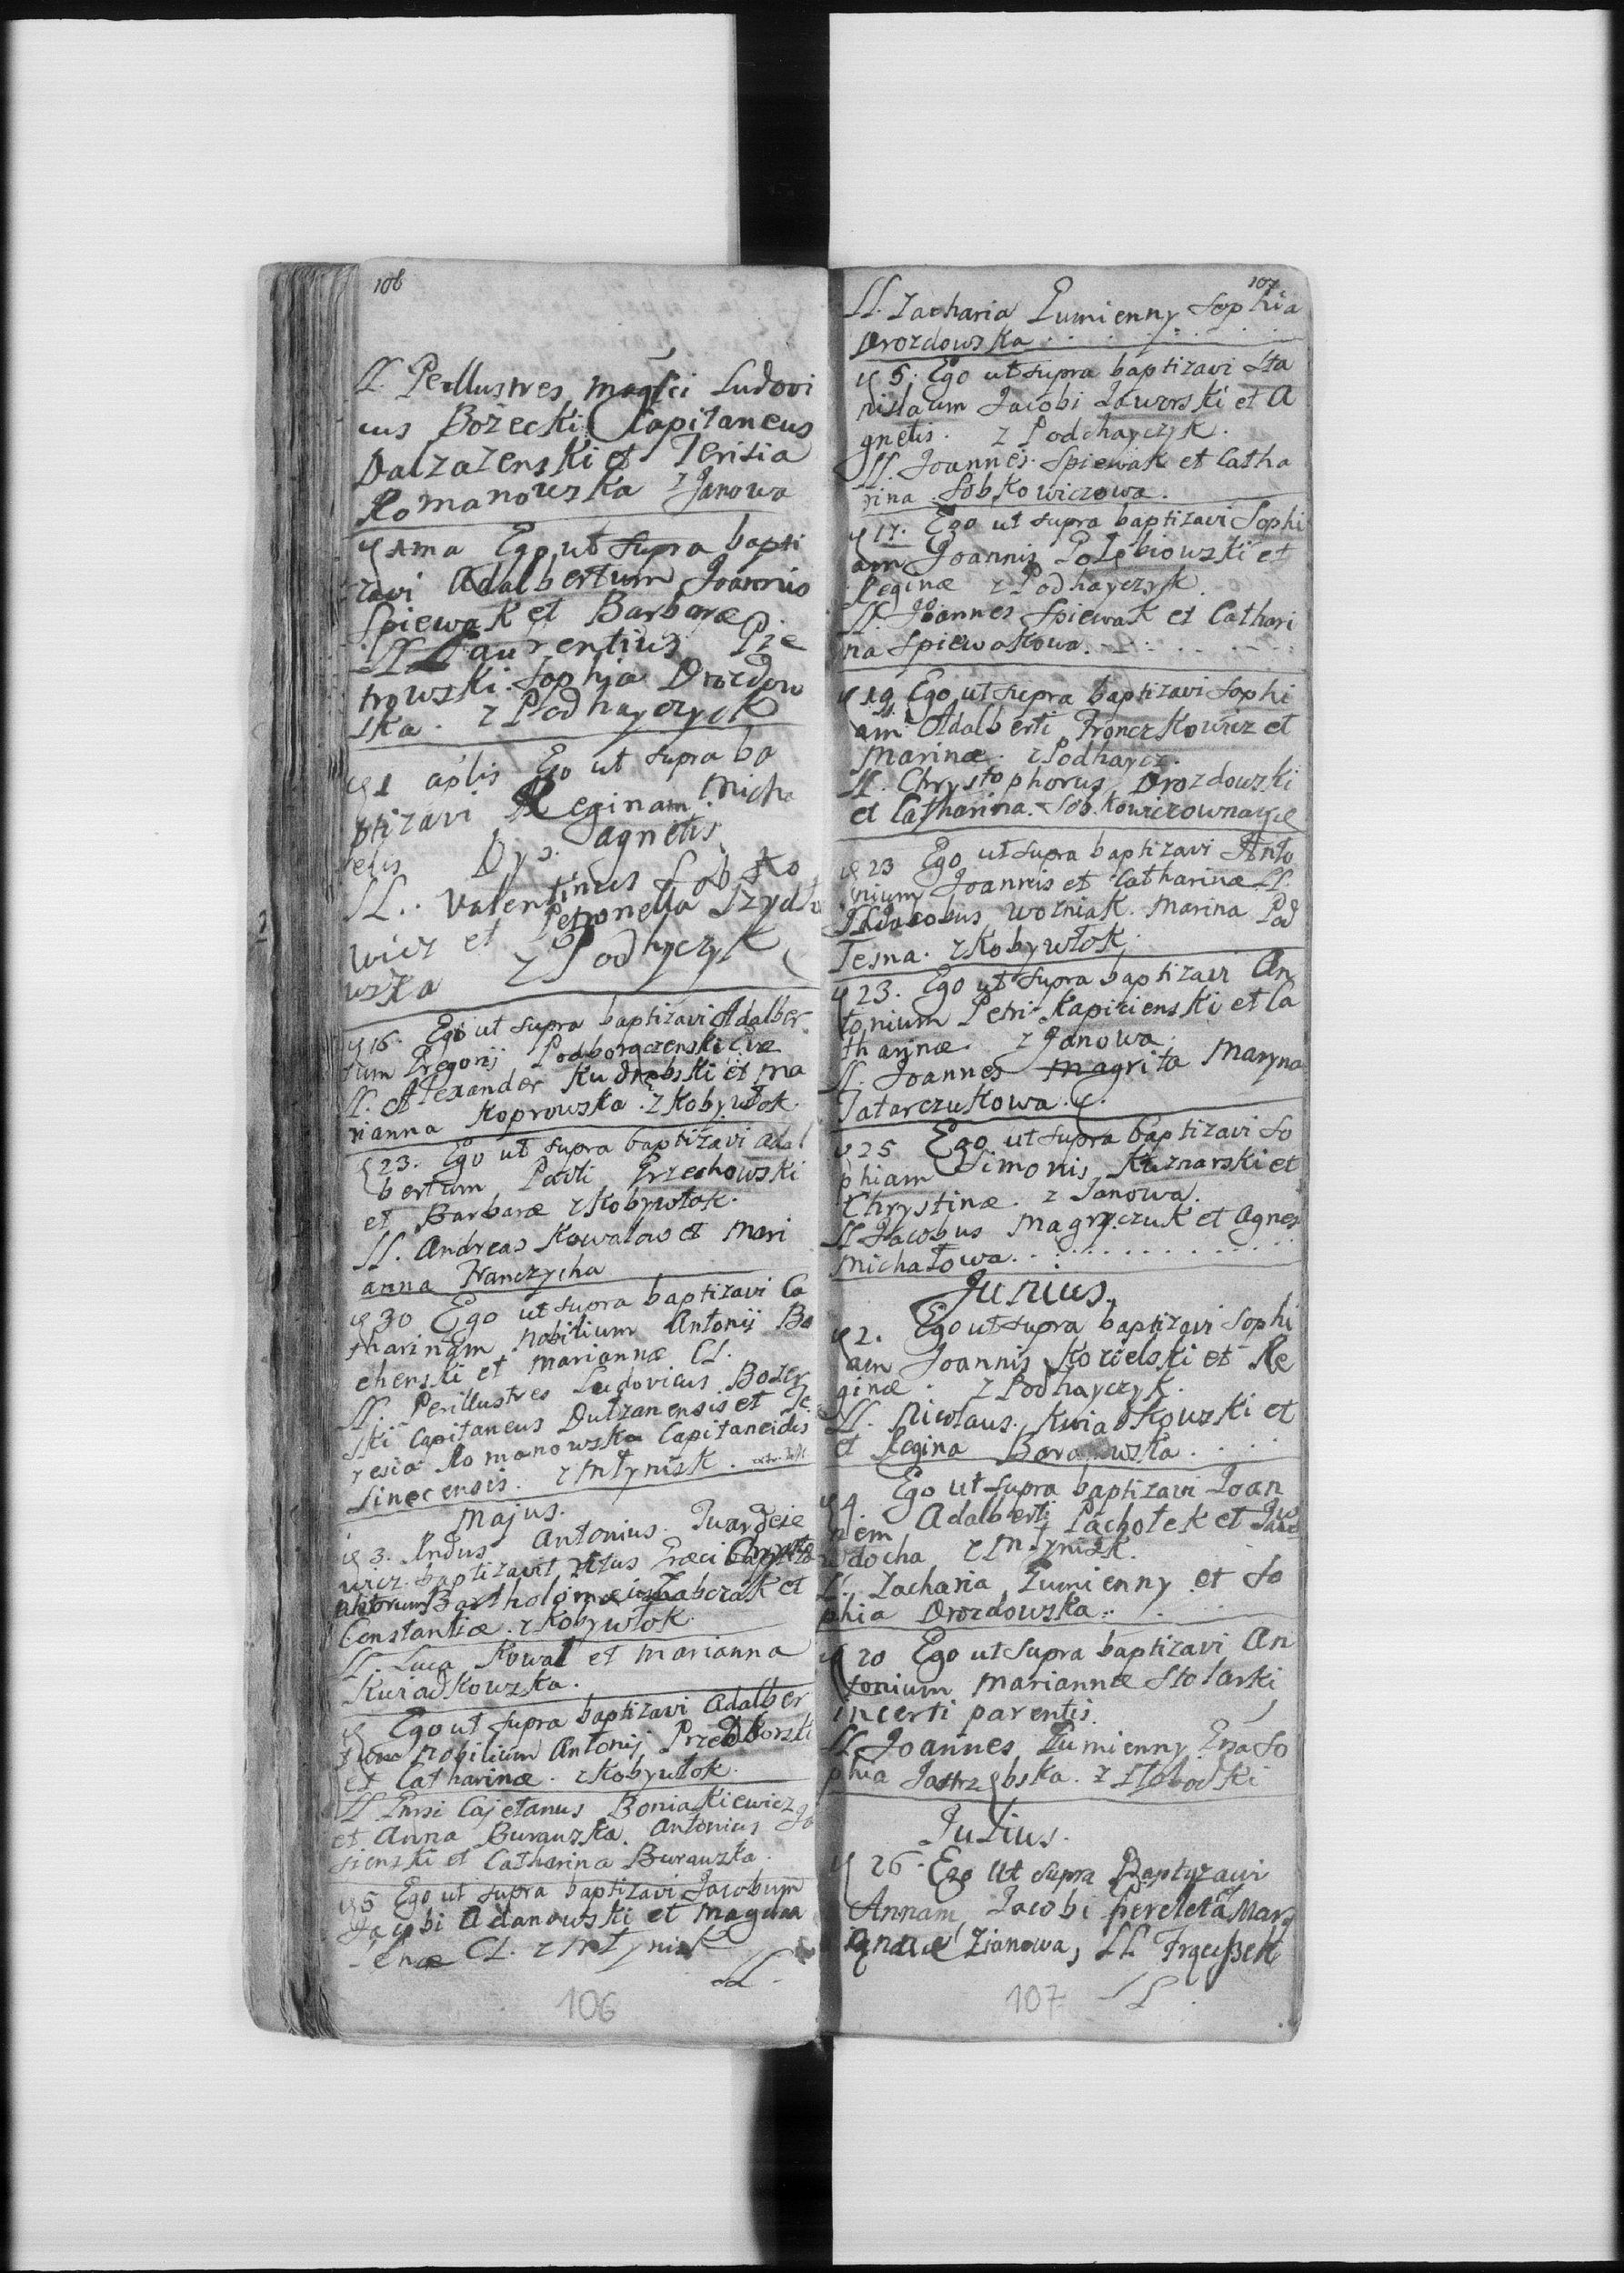 106
LL. Perillustres Magfici Ludovi
cus Bożecki Capitaneus
Dalzazenski et Terisia
Romanowska z Janowa
ama Ego ut supra bapti
zavi Adalbertum Joannis
Spiewak et Barbaræ
LL Laurentius Pie
trowski. Sophia Drozdow
ska. z Podhayczyck
1 aplis Ego ut supra ba
ptizavi Reginam Micha
elis Dys. agnetis
LL. Valentinus Sobko
wicz et Petronella Szydło
wska z Podhyczyk
16. Ego ut supra baptizavi Adalber
tum Gregorij Podborączenski Evæ
LL. Alexander Kudrębski et Ma
rianna Koprowska. z Kobywłok.
23. Ego ut supra baptizavi adal
bertum Pauli Grzechowski
et Barbaræ z Kobywłok.
LL. Andreas Kowalow et Mari
anna Franczycha
30 Ego ut supra baptizavi Ca
tharinam Nobilium Antonij Bo
chenski et Mariannæ CL.
LL. Perillustres Ludovicus Bozec
ski Capitaneus Dulzanensis et Te
resia Romanowska Capitaneidis
Sinecensis. z Młynisk.
Majus.
3. Rndus Antonius Twardzie
wicz baptizavit ritus Græci
Bartholomæius Zabczak et
Constantiæ. z Kobywłok
LL. Luca Kowal et Marianna
Kwiadkowska.
Ego ut supra baptizavi Adalber
tum Nobilium Antonij Przedborski
et Catharinæ. z Kobywłok.
LL Cajetanus Boniakiewicz
et Anna Burawska. Antonius Ja
sienski et Catharina Burawska.
5 Ego ut supra baptizavi Jacobum
Jacobi Adanowski et Magda
lenæ CL. z Młynisk
LL.
106
107
LL. Zacharia Tumienny Sophia
Drozdowska
5. Ego ut supra baptizavi Sta
nislaum Jacobi Jaworski et A
gnetis. z Podchayczyk.
LL. Joannes Spiewak et Catha
rina Sobkowiczowa.
17. Ego ut supra baptizavi Sophi
am Joannis Połębiowski et
Reginæ z Podhayczyk.
LL. Joannes Spiewak et Cathari
na Spiewakowa.
19 Ego ut supra baptizavi Sophi
am Adalberti Fronczkowicz et
Marinæ. z Podhaycz.
LL. Chrystophorus Drozdowski
et Catharina. Sobkowiczowna
23 Ego ut supra baptizavi Anto
nium Joannis et Catharinæ LL.
Jacobus Wozniak. Marina Pod
lesna. z Kobywłok.
23. Ego ut supra baptizavi An
tonium Petri Kapicienski et Ca
tharinæ. z Janowa.
LL. Joannes Magrita Maryna
Tatarczukowa.
25 Ego ut supra baptizavi So
phiam Simonis Kuznarski et
Chrystinæ. z Janowa.
LL Jacobus Magryczuk et Agnes
Michałowa.
Junius.
2. Ego ut supra baptizavi Sophi
am Joannis Kozielski et Re
ginæ. z Podhayczyk.
LL. Nicolaus Kwiadkowski et
et Regina Baranowska.
4. Ego ut supra baptizavi Joan
nem Adalberti Pachołek et Jew
docha z Młynisk.
LL. Zacharia Tumienny et So
phia Drozdowska.
20 Ego ut supra baptizavi An
tonium Mariannæ Stolarski
incerti parentis.
LL Joannes Tumienny Gnsa So
phia Jastrzębska. z Słobodki
Julius.
26. Ego ut supra Baptyzawi
Annam Jacobi Pereleta Mary
z Janowa, LL.
LL
107